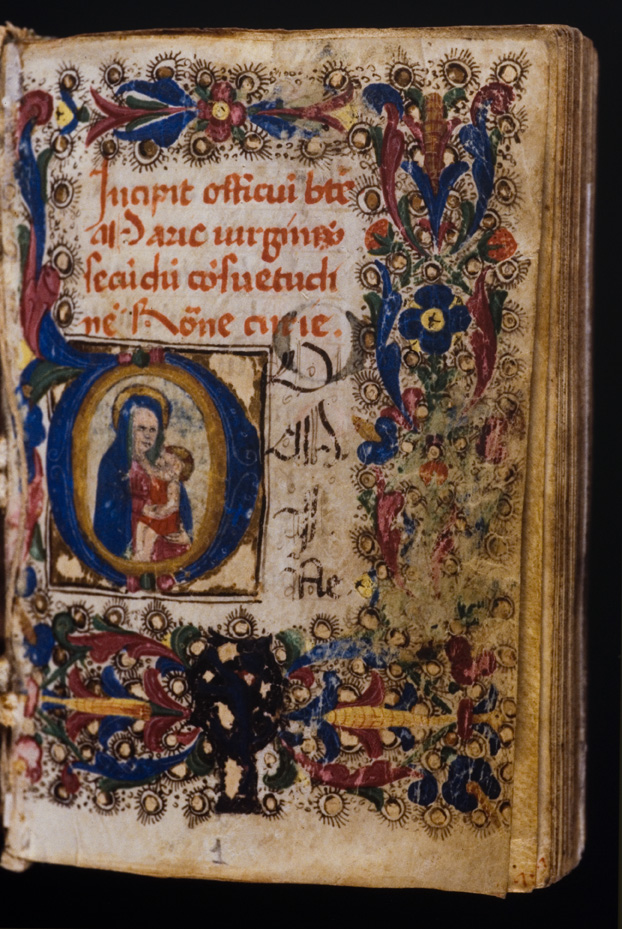 Incipit officiū btē
Marie uirginis
secūdū cōsuetudi
nē Rōne curie.
D
A
Ne
1